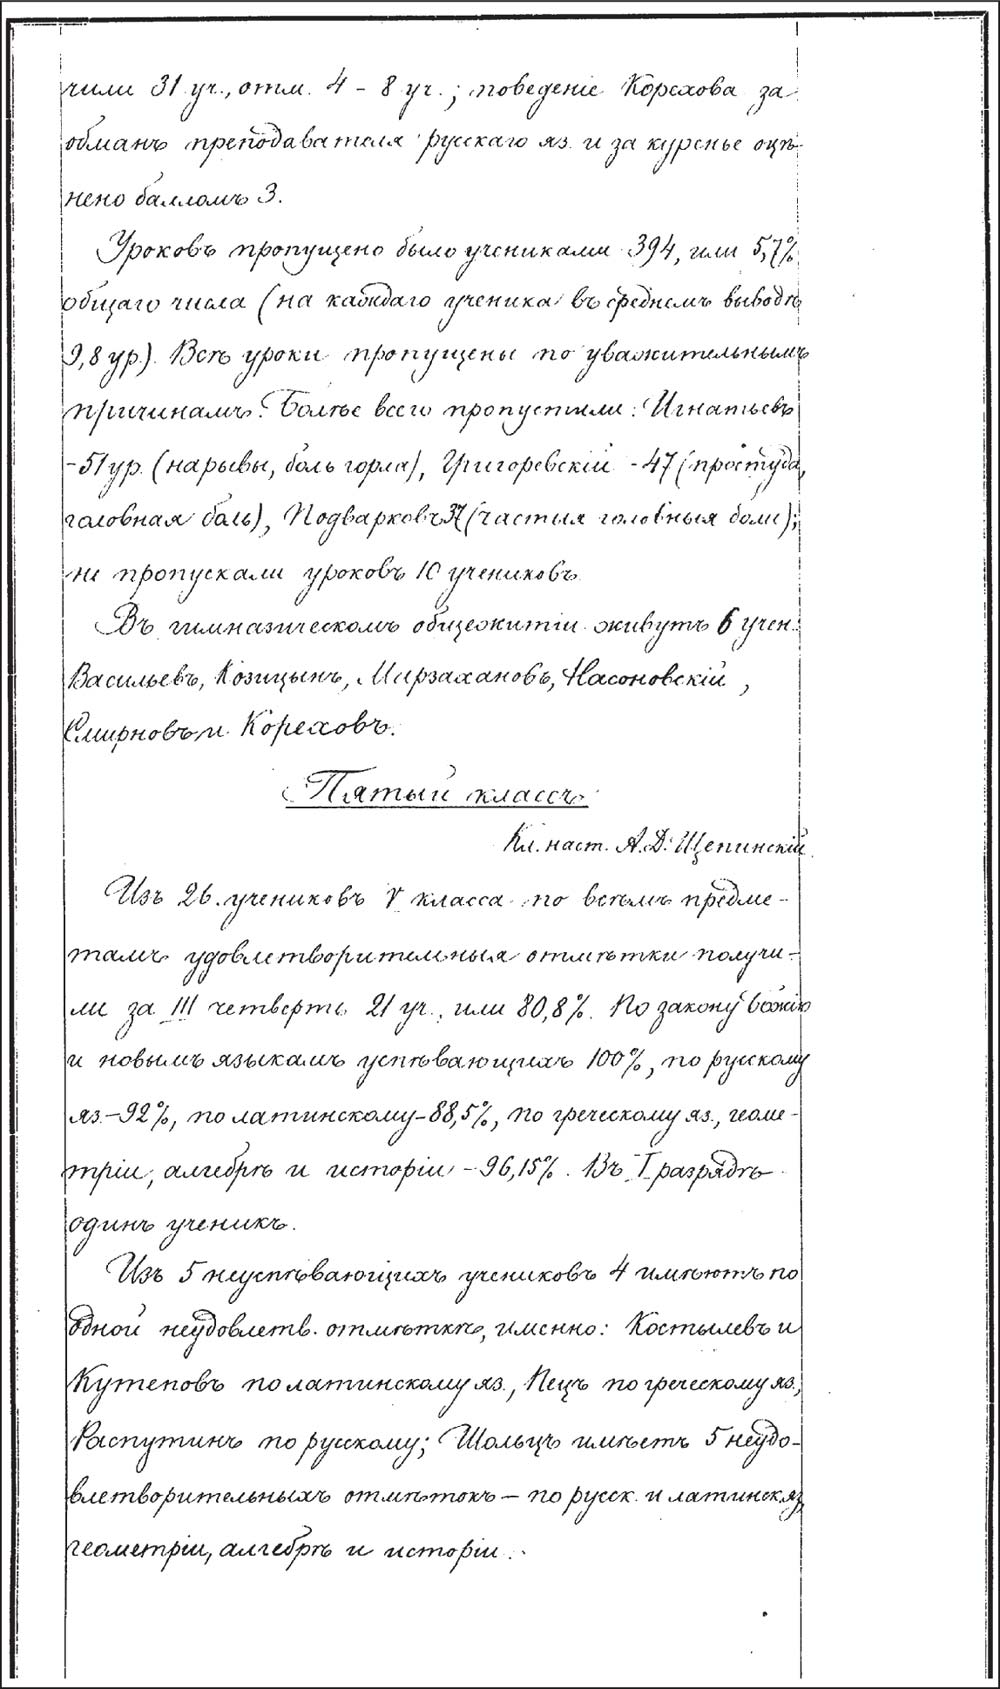 чили 31 уч., отм. 4 – 8 уч.; поведеніе Корехова за
обманъ преподавателя русскаго яз. и за куренье оцѣ-
нено балломъ 3.
Уроковъ пропущено было учениками 394, или 5,7%
общаго числа (на каждаго ученика въ среднемъ выводѣ
9,8 ур.). Всѣ уроки пропущены по уважительнымъ
причинамъ. Болѣе всего пропустили: Игнатьевъ
– 51 ур. (нарывы, боль горла), Григоревскій – 47 (простуда,
головная боль), Подварковъ 37 (частыя головныя боли);
не пропускали уроковъ 10 учениковъ.
Въ гимназическомъ общежитіи живутъ 6 учен.:
Васильевъ, Козицынъ, Мирзахановъ, Насоновскій,
Смирновъ и Кореховъ.
Пятый классъ
Кл. наст. А. Д. Щепинскій.
Изъ 26 учениковъ V класса по всѣмъ предме-
тамъ удовлетворительныя отмѣтки получи-
ли за III четверть 21 уч., или 80,8%. По закону Божію
и новымъ языкамъ успѣвающихъ 100%, по русскому
яз. – 92%, по латинскому – 88,5%, по греческому яз., геоме-
тріи, алгебрѣ и исторіи – 96,15%. Въ I разрядѣ
одинъ ученикъ.
Изъ 5 неуспѣвающихъ учениковъ 4 имѣютъ по
одной неудовлетв. отмѣткѣ, именно: Костылевъ и
Кутеповъ по латинскому яз., Пецъ по греческому яз.,
Распутинъ по русскому; Шольцъ имѣетъ 5 неудо-
влетворительныхъ отмѣтокъ – по русск. и латинск. яз,
геометріи, алгебрѣ и исторіи.